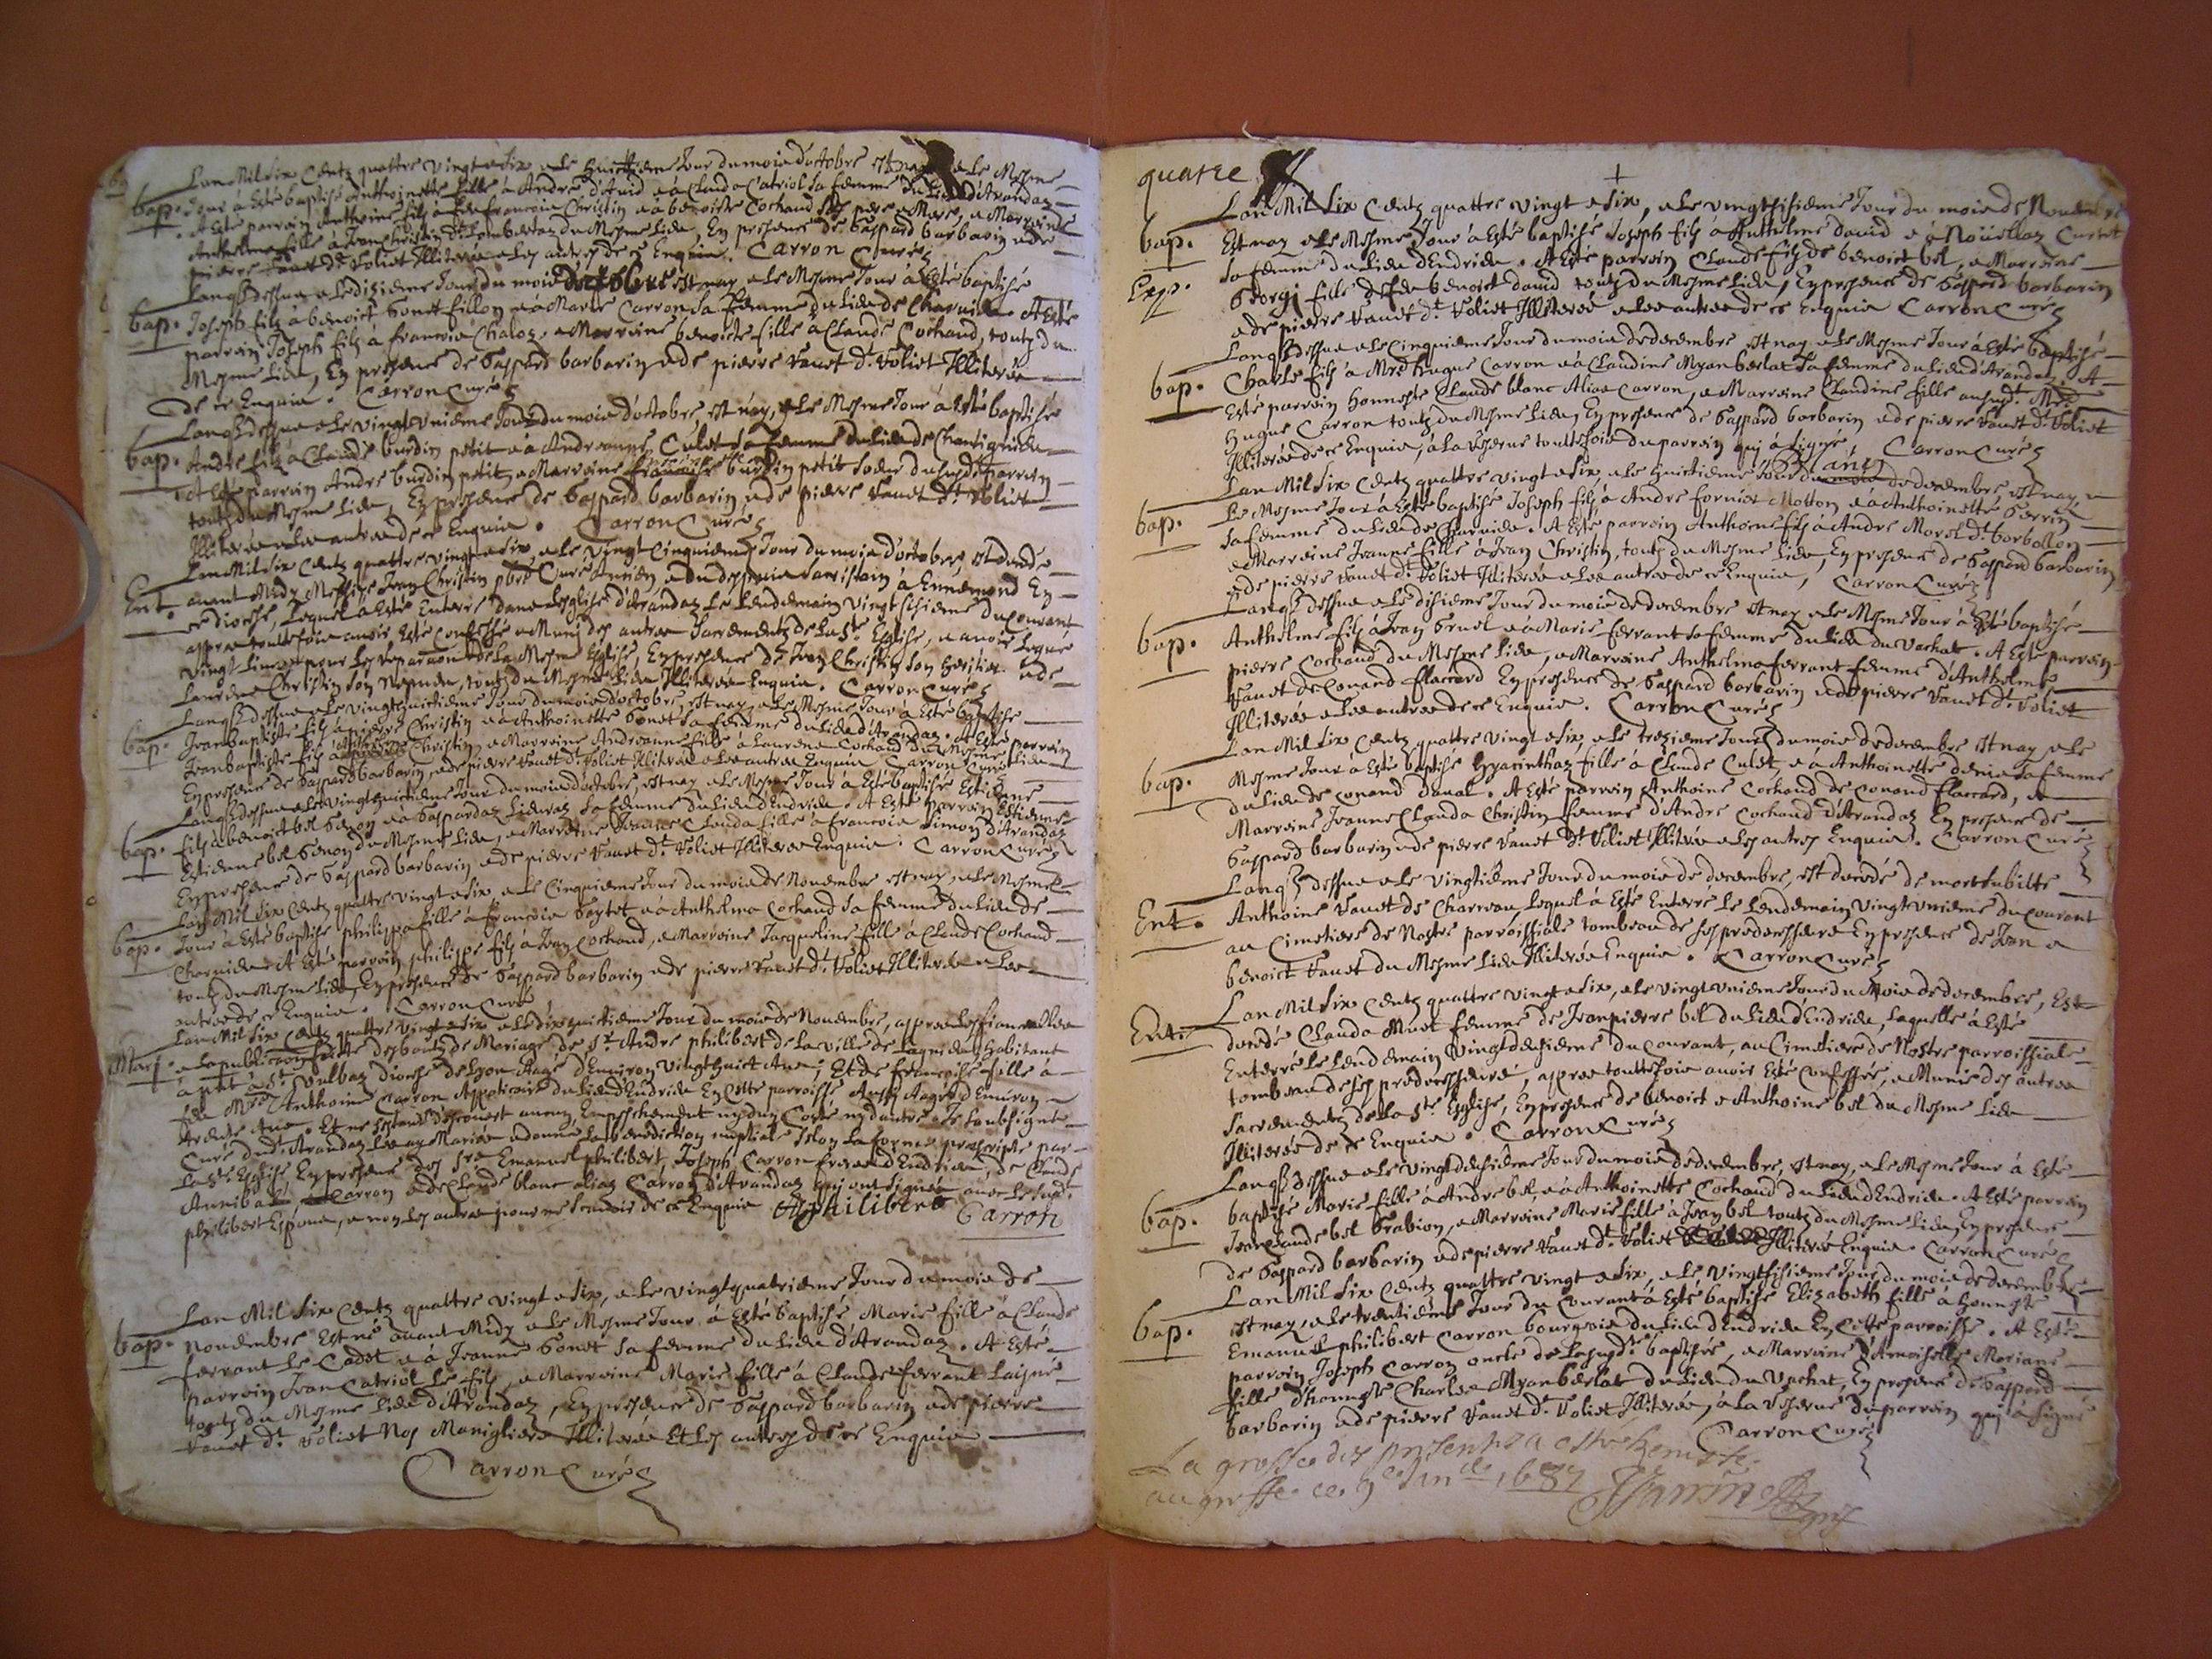 Lan Mil Six Centz quattre vingt e Six, e le huictieme Jour du mois d'octobre est nay e le Mesme
bap. Jour a Esté baptisé Anthoinette fille à André d'Avid e à Clauda Catriol sa femme du Lieu d'Arandaz
A Esté parrain Anthoine filz à feu francois Christin e à benoiste Cochand ses pere e Mere, e Marraine
Anthelma fille à Jean Christin du Mesme Lieu, En presence de Gaspard barbarin e de
pierre vanet dt. Voliet Illiterés e les autres de ce Enquis. Carron Curé
Langz dessus e le dixieme Jour du mois d'octobre est nay e le Mesme Jour à Esté baptisé
bap. Joseph filz à benoict Gonet fillon e à Marie Carron sa femme du Lieu de Charvieu. A Esté
parrain Joseph filz à francois Chaloz, e Marraine benoiste fille à Claude Cochand, toutz du
Mesme Lieu, En presence de Gaspard barbarin e de pierre vanet dt. Voliet Illiterés
de ce Enquis. Carron Curé
Langz dessus e le vingt unieme Jour du mois d'octobre, est nay, e le Mesme Jour à Esté baptisé
bap. André filz à Claude burdin petit e à Andreanne Culet sa femme du Lieu de
A Esté parrain André burdin petit, e Marraine burdin petit soeur du susdt parrain
toutz du Mesme Lieu, En presence de Gaspard barbarin e de pierre vanet dt Voliet
Illiterés e les autres de ce Enquis. Carron Curé
Lan Mil Six Centz quattre vingt e Six, e le vingt Cinquieme Jour du mois d'octobre, est decedé
Ent. avant Midy Messire Jean Christin pbre Curé Antien, e du despuis Sacristain à Ennemond En
ce diocese, Lequel a Esté Enterré dans Lesglise d'Arandaz le lendemain vingt sixieme du courant
appres touttefois avoir Esté confessé e Muni des autres Sacrementz de la Ste. Esglise, e avoir Legué
vingt livres pour les reparaons de la Mesme Esglise, En presence de Jean Christin son heritier e de
Laurens Christin son Nepveu, toutz du Mesme Lieu Illiterés Enquis. Carron Curé
Langz dessus e le vingthuictieme Jour du mois d'octobre, est nay, e le Mesme Jour à Esté baptisé
bap. Jean baptiste filz à pierre Christin e à Anthoinette Gonet sa femme du Lieu d'Arandaz. A Esté parrain
Jean baptiste filz à Christin, e Marraine Andreanne fille à Laurens Cochand du Mesme Lieu
En presence de Gaspard barbarin, e de pierre vanet dt Voliet Illiterés e les autres Enquis Carron Curé
Langz dessus e le vingthuictieme Jour du mois d'octobre, est nay e le Mesme Jour à Esté baptisé Estienne
bap. filz à benoict bel Genon e à Gaspardaz Lieuraz sa femme du Lieu d'Endrieu. A Esté parrain Estienne
Estienne bel Genon du Mesme Lieu, e Marraine Clauda fille à francois Simon d'Arandaz
En presence de Gaspard barbarin e de pierre vanet dt Voliet Illiterés Enquis. Carron Curé
Lan Mil Six Centz quattre vingt e Six, e le Cinquieme Jour du mois de Novembre est nay, e le Mesme
bap. Jour à Esté baptisé philippa fille à francois Seytet e à Anthelma Cochand sa femme du Lieu de
Charvieu. A Esté parrain philippe filz à Jean Cochand, e Marraine Jacqueline fille à Claude Cochand
toutz du Mesme Lieu, En presence de Gaspard barbarin e de pierre vanet dt. Voliet Illiterés e les
autres de ce Enquis. Carron Curé
Lan Mil Six Centz quattre vingt e Six e le dixhuictieme Jour du mois de Novembre, appres les fiansailles
Mari. e la publicaon faitte des bantz de Mariage de Sr. André philibert de la ville de Lagnieu habitant
à pnt à St. Vulbaz diocese de Lyon Aagé d'Environ vingthuict Ans; Et de francoise fille à
feu Mre Anthoine Carron Appoticaire du Lieu d'Endrieu En cette parroisse Aagée d'Environ
trente Ans. Et ne s'estant descouvert aucun Empeschement ny d'un Costé ny d'autre, Je soubsigné
Curé dudt. Arandaz Les ay Mariés e donné la benediction nuptiale selon la forme prescripte par
la Ste Esglise, En presence des srs Emanuel philibert, Joseph Carron freres d'Endrieu, de Claude
Annibal, Carron e de Claude blanc alias Carron d'Arandaz qui ont signés avec le susdt
philibert Espoux, e non les autres pour ne scavoir de ce Enquis A philibert Carron
Lan Mil Six Centz quattre vingt e Six, e le vingtquatrieme Jour du mois de
bap. Novembre Est né avant Midy e le Mesme Jour, à Esté baptisé Marie fille à Claude
ferrant le Cadet e à Jeanne Gonet sa femme du Lieu d'Arandaz. A Esté
parrain Jean Catriol le filz, e Marraine Marie fille à Claude ferrant Laisné
toutz du Mesme Lieu d'Arandaz, En presence de Gaspard barbarin e de pierre
vanet dt. Voliet Nos Manigliers Illiterés Et les autres de ce Enquis
Carron Curé
quatre
Lan Mil Six Centz quattre vingt e Six, e le vingtsixieme Jour du mois de Novembre
bap. Est nay e le Mesme Jour à Esté baptisé Joseph filz à Anthelme david e à Noüellaz Curtet
sa femme du Lieu d'Endrieu. A Esté parrain Claude filz de benoict bel, e Marraine
Exp. Georgi fille de feu benoict david toutz du Mesme Lieu, En presence de Gaspard barbarin
e de pierre vanet dt. Voliet Illiterés e les autres de ce Enquis Carron Curé
Langz dessus e le Cinquieme Jour du mois de decembre est nay e le Mesme Jour à Esté baptisé
bap. Charle filz à Mre Hugue Carron e à Claudine Myanberlat sa femme du Lieu d'Arandaz. A
Esté parrain honneste Claude blanc Alias Carron, e Marraine Claudine fille audt. Mre
Hugue Carron toutz du Mesme Lieu, En presence de Gaspard barbarin e de pierre vanet dt. Voliet
Illiterés de ce Enquis, à la reserve touttefois du parrain qui à signé. Carron Curé
Lan Mil Six Centz quattre vingt e Six e le huictieme Jour du mois de decembre, est nay, e
bap. le Mesme Jour à Esté baptisé Joseph filz à André fornier Motton e à Anthoinette Perrin
sa femme du Lieu de Charvieu. A Esté parrain Anthoine filz à André Morel dt. borbollon
e Marraine Jeanne fille à Jean Christin, toutz du Mesme Lieu, En presence de Gaspard barbarin
e de pierre vanet dt. Voliet Illiterés e les autres de ce Enquis, Carron Curé
Langz dessus e le dixieme Jour du mois de decembre est nay e le Mesme Jour à Esté baptisé
bap. Anthelme filz à Jean Gruel e à Marie ferrant sa femme du Lieu du Vachat. A Esté parrain
pierre Cochand du Mesme Lieu, e Marraine Anthelma ferrant femme d'Anthelme
vanet de Conand flaccard En presence de Gaspard barbarin e de pierre vanet dt. Voliet
Illiterés e les autres de ce Enquis. Carron Curé
Lan Mil Six Centz quattre vingt e Six, e le trezieme Jour du mois de decembre est nay e le
bap. Mesme Jour à Esté baptisé Hyacinthaz fille à Claude Culet, e à Anthoinette denis sa femme
du Lieu de Conand d'aval. A Esté parrain Anthoine Cochand de Conand flaccard, e
Marraine Jeanne Clauda Christin femme d'André Cochand d'Arandaz En presence de
Gaspard barbarin e de pierre vanet dt. Voliet Illiterés e les autres Enquis. Carron Curé
Langz dessus e le vingtieme Jour du mois de decembre, est decedé de mort subitte
Ent. Anthoine vanet de Charveau, Lequel à Esté Enterré le Lendemain vingt unieme du courant
au Cimetiere de Nostre parroissiale tombeau de ses predecesseurs En presence de Jean e
benoict vanet du Mesme Lieu Illiterés Enquis. Carron Curé
Lan Mil Six Centz quattre vingt e Six, e le vingt unieme Jour du Mois de decembre, Est
Ent. decedé Clauda Muet femme de Jean pierre bel du Lieu d'Endrieu, Laquelle à Esté
Enterré le Lendemain vingtdeuxieme du courant, au Cimetiere de Nostre parroissiale
tombeau de ses predecesseurs, appres touttefois avoir Esté Confessée, e Munie des autres
Sacrementz de la Ste. Esglise, En presence de benoict e Anthoine bel du Mesme Lieu
Illiterés de ce Enquis. Carron Curé
Langz dessus e le vingtdeuxieme Jour du mois de decembre, est nay, e le Mesme Jour à Esté
bap. baptisé Marie fille à André bel, e à Anthoinette Cochand du Lieu d'Endrieu. A Esté parrain
Jean Claude bel Grabion, e Marraine Marie fille à Jean bel toutz du Mesme Lieu, En presence
de Gaspard barbarin e de pierre vanet dt. Voliet Illiterés Enquis. Carron Curé
Lan Mil Six Centz quattre vingt e Six, e le vingtsixieme Jour du mois de decembre
bap. est nay, e le trentieme Jour du Courant à Esté baptisé Elizabeth fille à honneste
Emanuel philibert Carron bourgeois du Lieu d'Endrieu En cette parroisse. A Esté
parrain Joseph Carron oncle de la susdte. baptisée, e Marraine Damoiselle Mariane
fille d'honneste Charles Myanberlat du Lieu du Vachat, En presence de Gaspard
barbarin e de pierre vanet dt. Voliet Illiterés, à la reserve du parrain qui à signé
Carron Curé
La grosse des presentes a esté remise
au greffe ce 9e Janer 1687